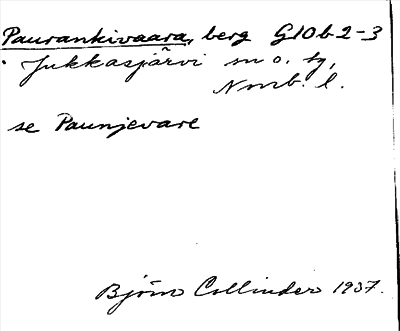 Paurankivaara, berg G10b2-3
Jukkasjärvi sn o. tg,
Nmb. l.
se Paunjevare
Björn Collinder 1937.